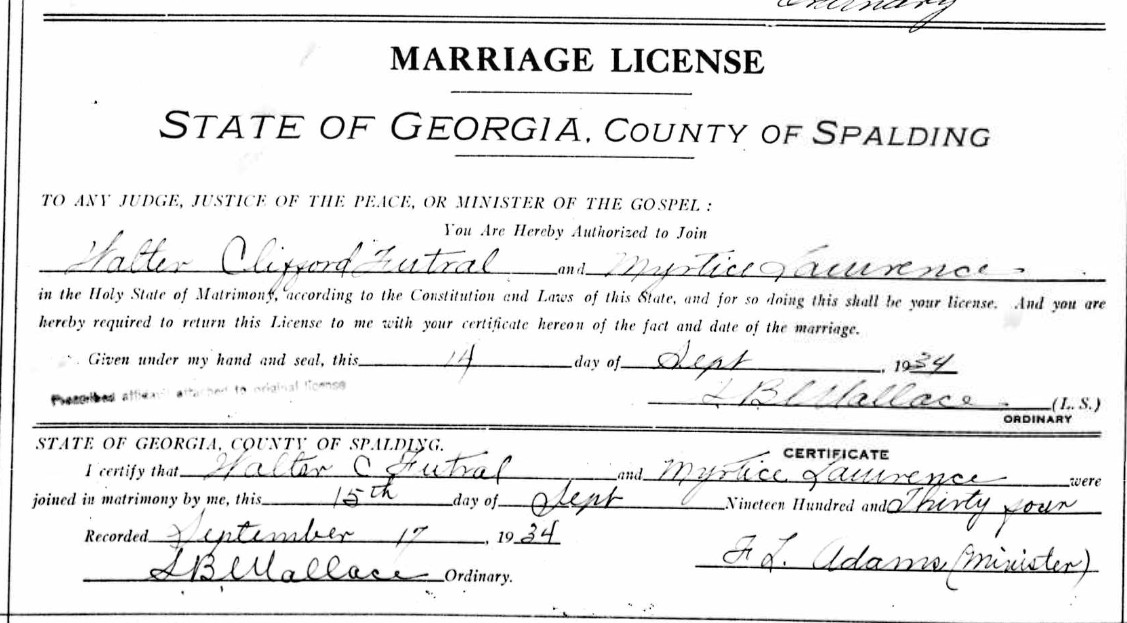 Ordinary
MARRIAGE LICENSE
STATE OF GEORGIA, COUNTY OF SPALDING
TO ANY JUDGE, JUSTICE OF THE PEACE, OR MINISTER OF THE GOSPEL :
You Are Hereby Authorized to Join
Walter Clifford Futral and Myrtice Lawrence
in the Holy State of Matrimony, according to the Constitution and Laws of this State, and for so doing this shall be your license. And you are
hereby required to return this License to me with your certificate hereon of the fact and date of the marriage.
Given under my hand and seal, this 14 day of Sept , 1934
Prescribed affidavit attached to original license
Wallace (L. S.)
ORDINARY
STATE OF GEORGIA, COUNTY OF SPALDING.
CERTIFICATE
I certify that Walter C Futral and Myrtice Lawrence were
joined in matrimony by me, this 15th day of Sept Nineteen Hundred and Thirty four
Recorded September 17 , 1934
F L. Adams (Minister)
Wallace Ordinary.